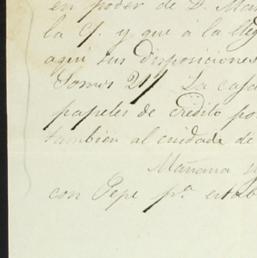 en poder de D. Man
la C/. y que á la lleg
aqui sus disposiciones
Somos 24// La casa
papeles de crédito po
también al cuidado de
Mañana
con Pepe pª